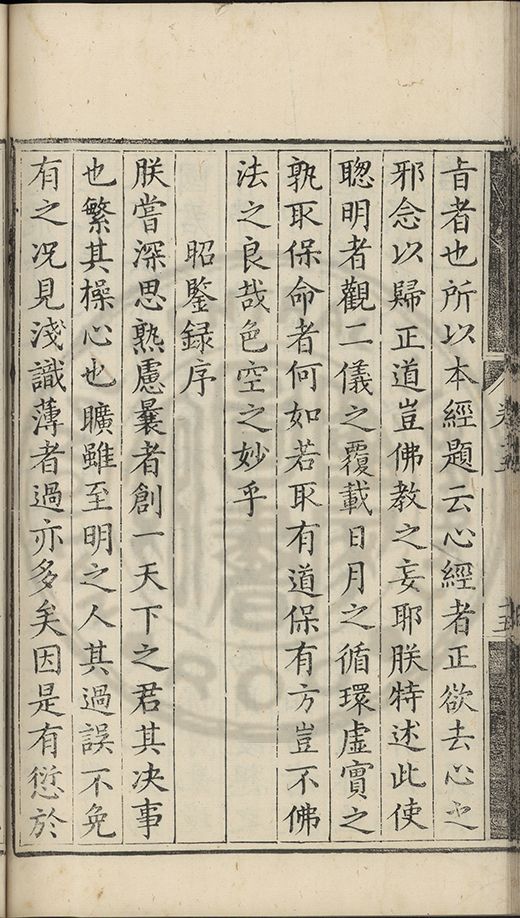 卷十五
十五
㫖者也所以本經題云心經者正欲去心之
邪念以歸正道豈佛教之妄耶朕特述此使
聦明者觀二儀之覆載日月之循環虛實之
孰取保命者何如若取有道保有方豈不佛
法之良哉色空之妙乎
昭鍳録序
朕嘗深思熟慮曩者創一天下之君其决事
也繁其操心也曠雖至明之人其過誤不免
有之况見淺識薄者過亦多矣因是有愆於